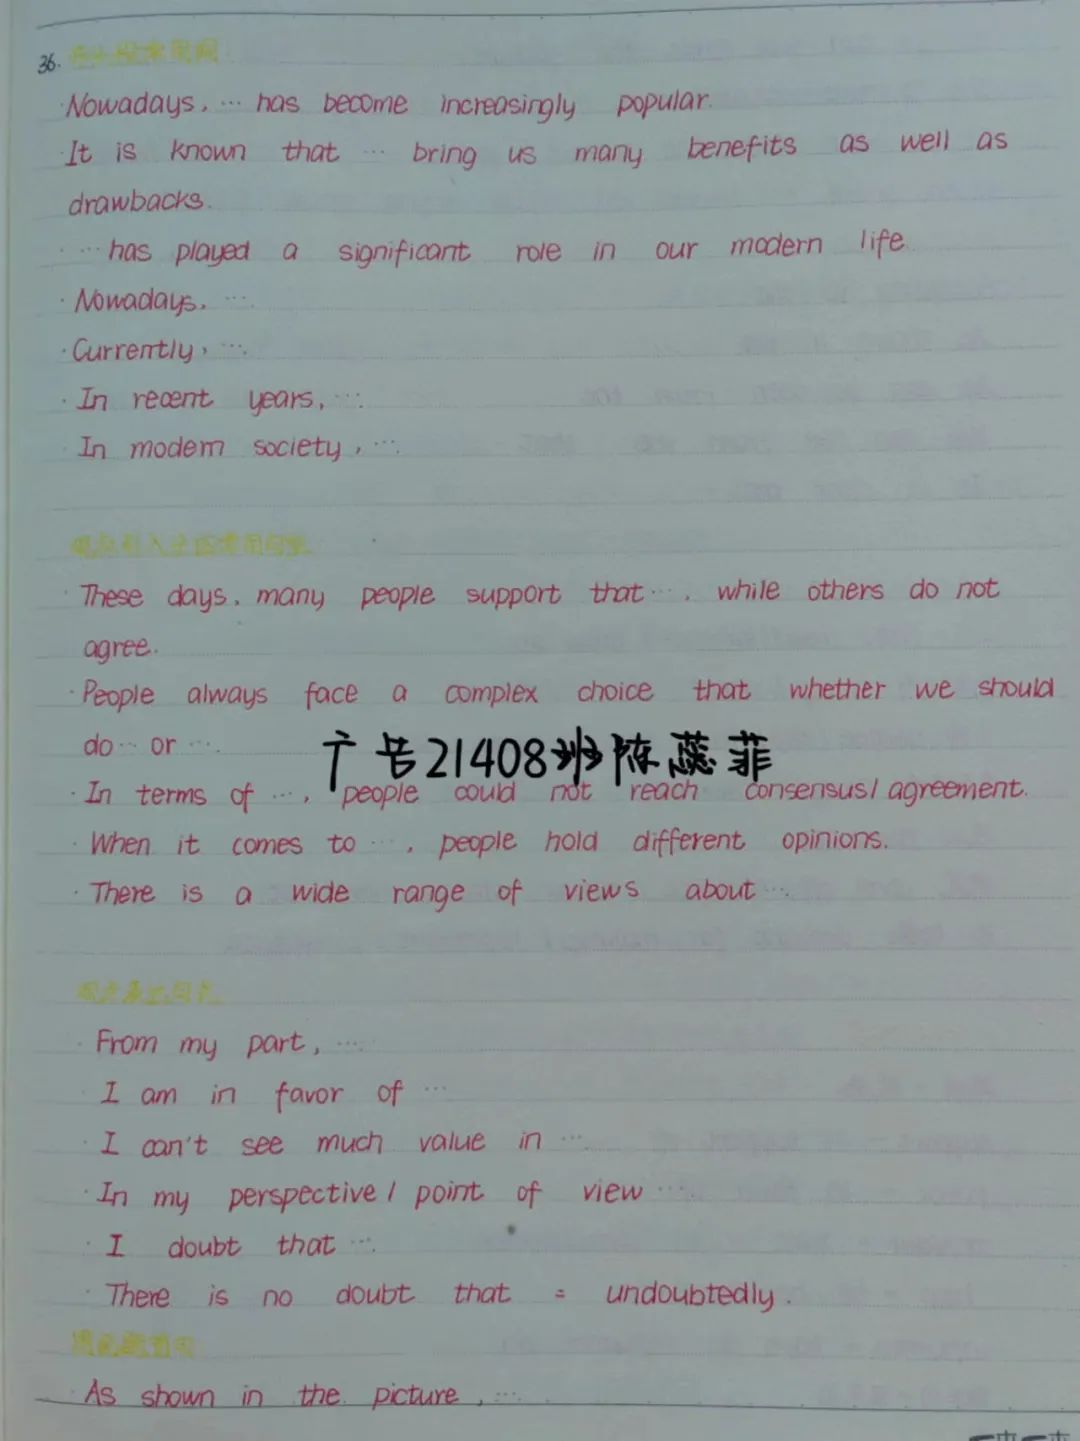 36. 开头段常用词
·Nowadays, … has become increasingly popular.
·It is known that … bring us many benefits as well as
drawbacks.
· …has played a significant role in our modern life
·Nowadays, …
·Currently, …
·In recent years, …
·In modern society, …
观点引入
·These days, many people support that…, while others do not
agree.
·People always face a complex choice that whether we should
do… or …
广告21408班陈蕊菲
·In terms of …, people could not reach consensus/agreement.
·When it comes to …, people hold different opinions.
·There is a wide range of views about …
观点表达句式
·From my part, …
I am in favor of …
·I can't see much value in …
·In my perspective/point of view …
·I doubt that …
·There is no doubt that = undoubtedly.
·As shown in the picture, …